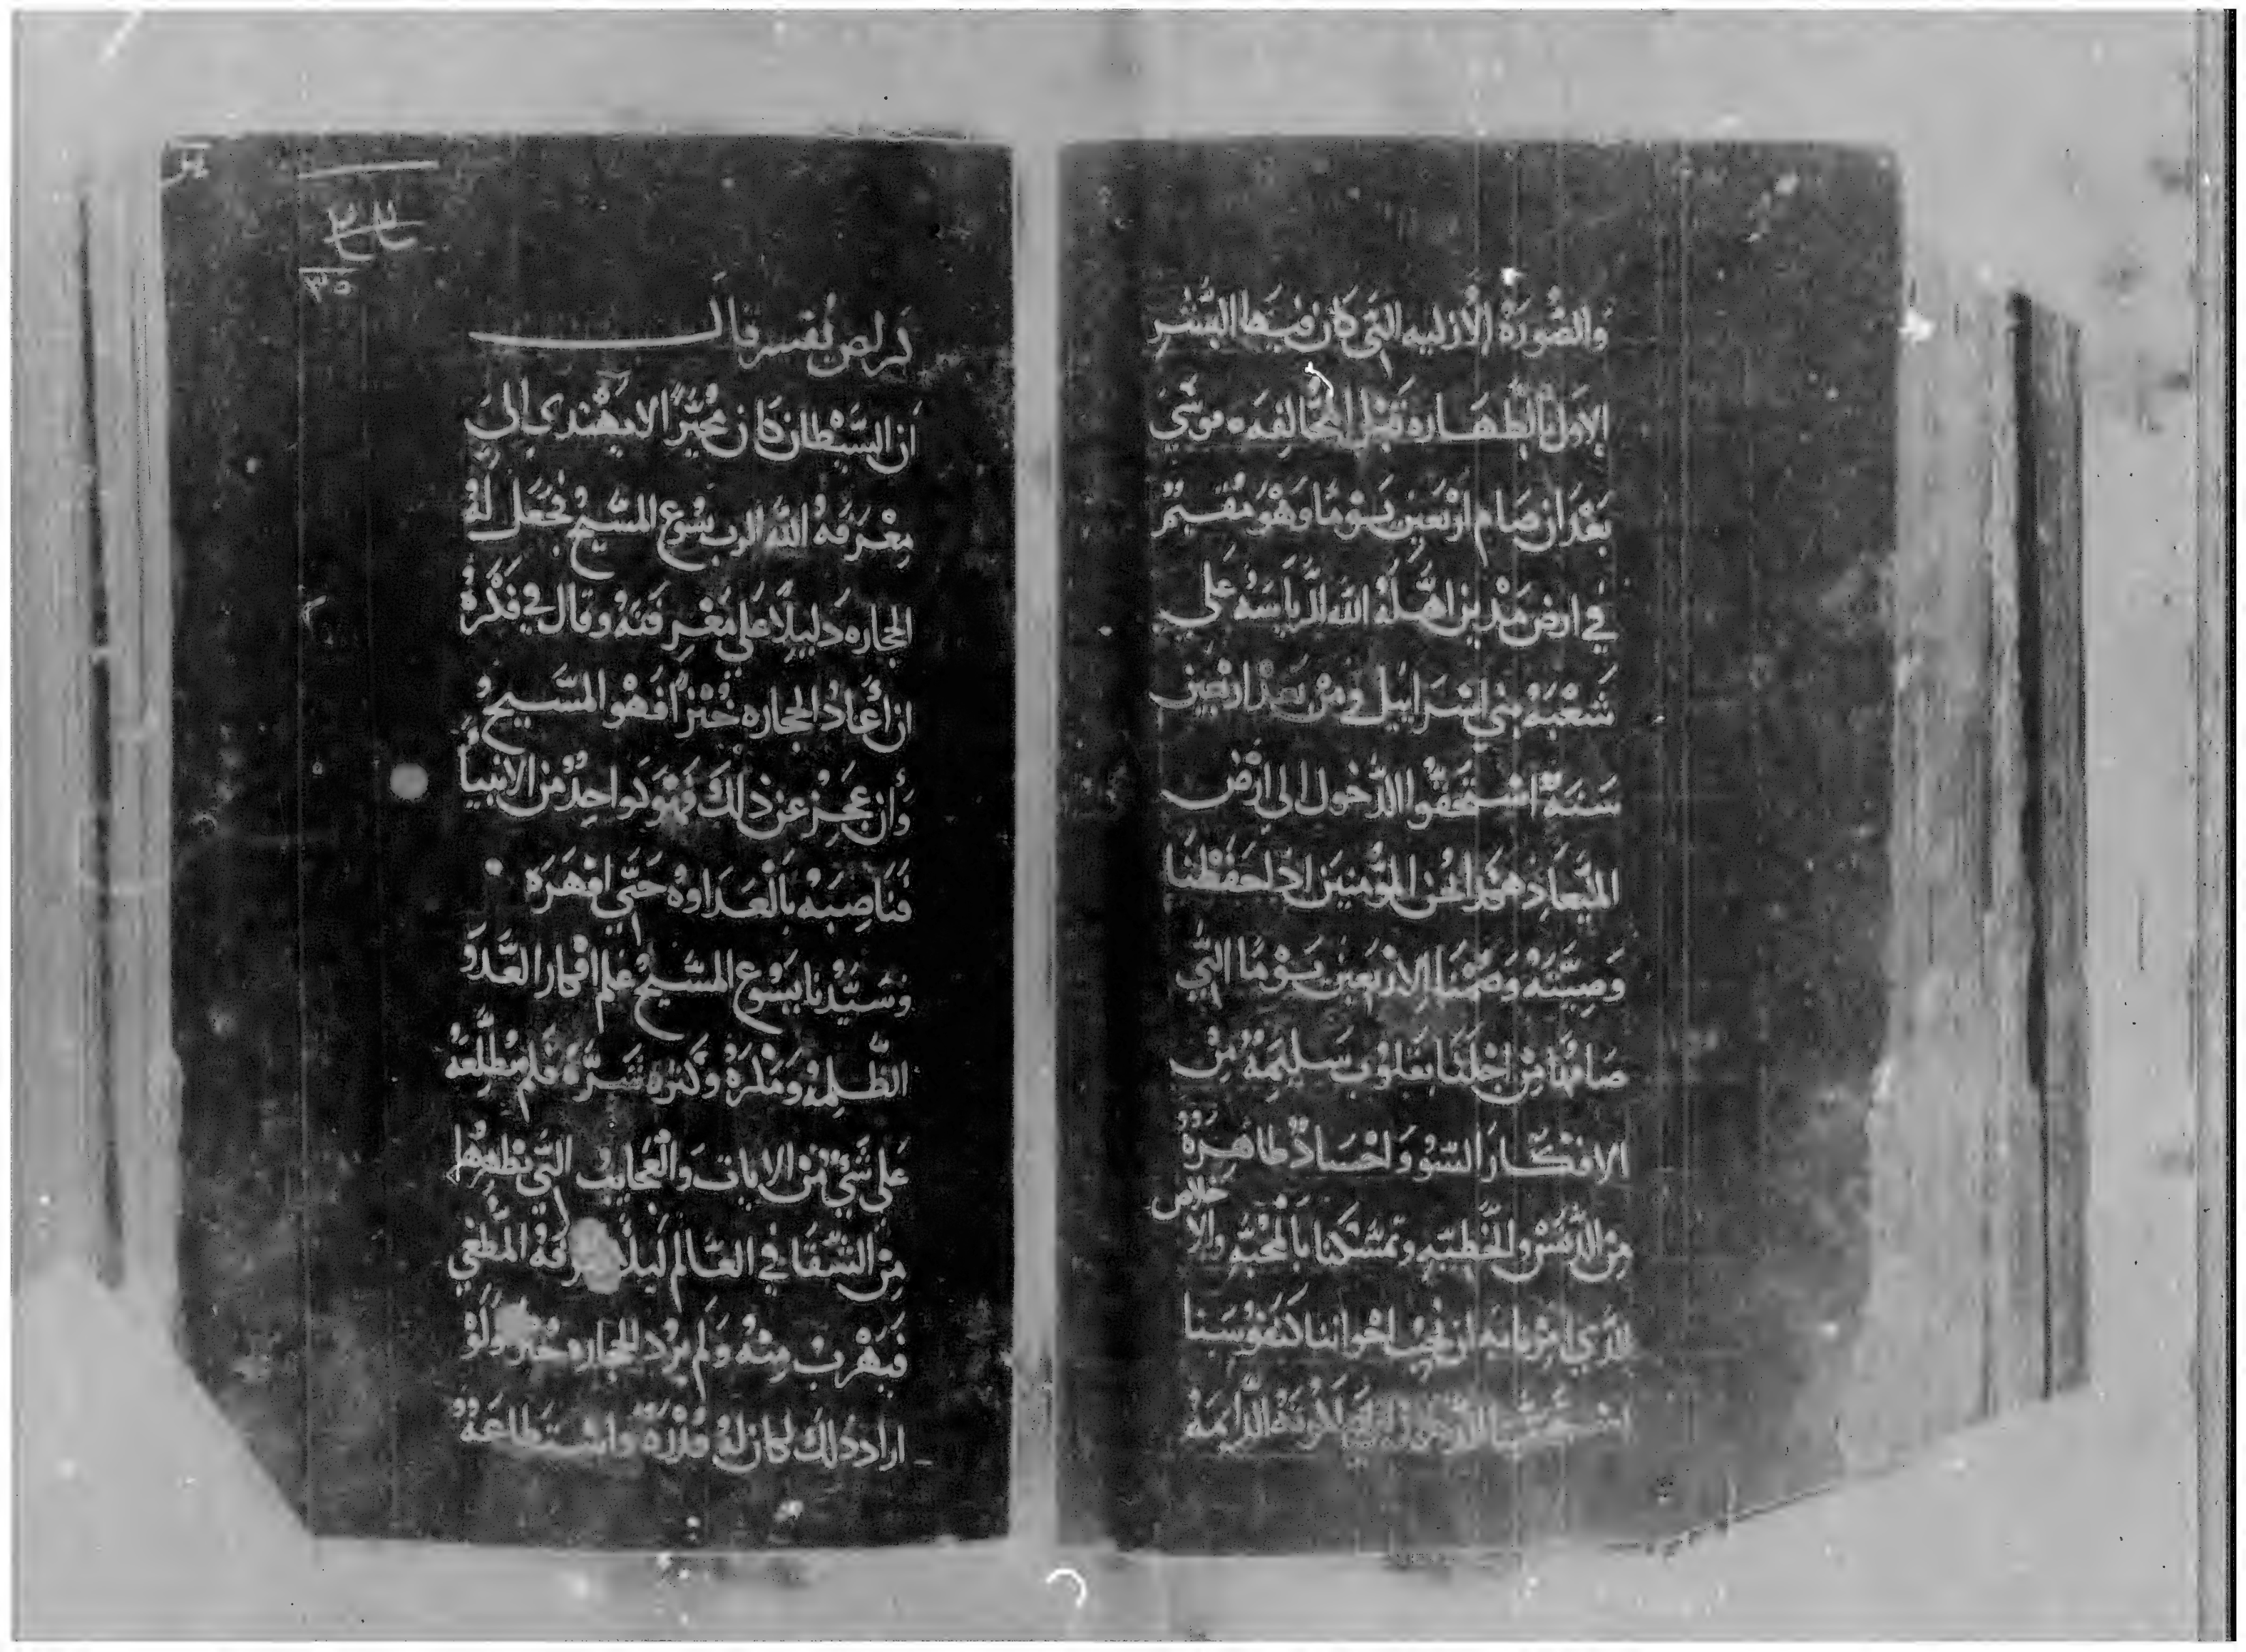 والصُورَة الازليه التي كان فيها البشر
الاول بالطهاره قبل المخالفه • موسَي
بَعْدَ ان صَام ارْبَعين يَوْمًا وَهْوَ مُقيمٌ
في ارض مَدْين اهَّلهُ الله الرياسَه علي
شَعْبَهُ بني اسْرَاييل ومن بعد ارْبعين
سَنَةً اسْتحَقُوا الدُخول الي ارْض
الميْعَاد هكذا نحن المؤمنين اذا حَفَظْنَا
وَصيَّتَهُ وَصُمْنَا الارْبَعين يَوْمًا التي
صَامَهَا مِنْ اجْلنَا بقلوبٍ سَليمَةً مِنْ
الافكَار السُو وَاجْسَادٌ طاهِرَةٌ
خلاص
مِنَ الدَنسْ والخطيه وتمسَّكنا بالمحَبّه والا
الذي امرنا به ان نحبُ اخواتنا كنفوسَنا
اسْتحَقينا الدخول الي الدايمَهُ
قال
ان الشَيْطان كان مُحيّرًا لا يَهْتدي الي
مِعْرَفةُ الله الرب يسُوع المسَيح فجعَل لهُ
الحجاره دَليلًا عَلي مَعْرفَتهُ وقال في فكْرهُ
ان اعَاد الحجاره خُبْزًا فهْو المسَيحُ
وَان عجزَ عَن ذلكَ فهْو كواحِدٌ من الانبيا
فنَاصِبَهُ بالعَدَاوَهْ حَتي اقهَرَه •
وسَيّدْنا يَسُوع المسَيح علم افكار العَدو
الظلمه وَمَكْرهُ وكثرة شَرّهُ فلم يُطْلعَهُ
عَلي شَيٌ من الايات والعَجايب التي يظهرْها
مِن الشفَا في العَالم ليلا المطغي
فيَهْربْ منهُ وَلم يَرُد الحجاره خُبْز وَلوْ
اراد ذلكَ لكان لهُ قُدْرَةً واسْتطاعَةٌ